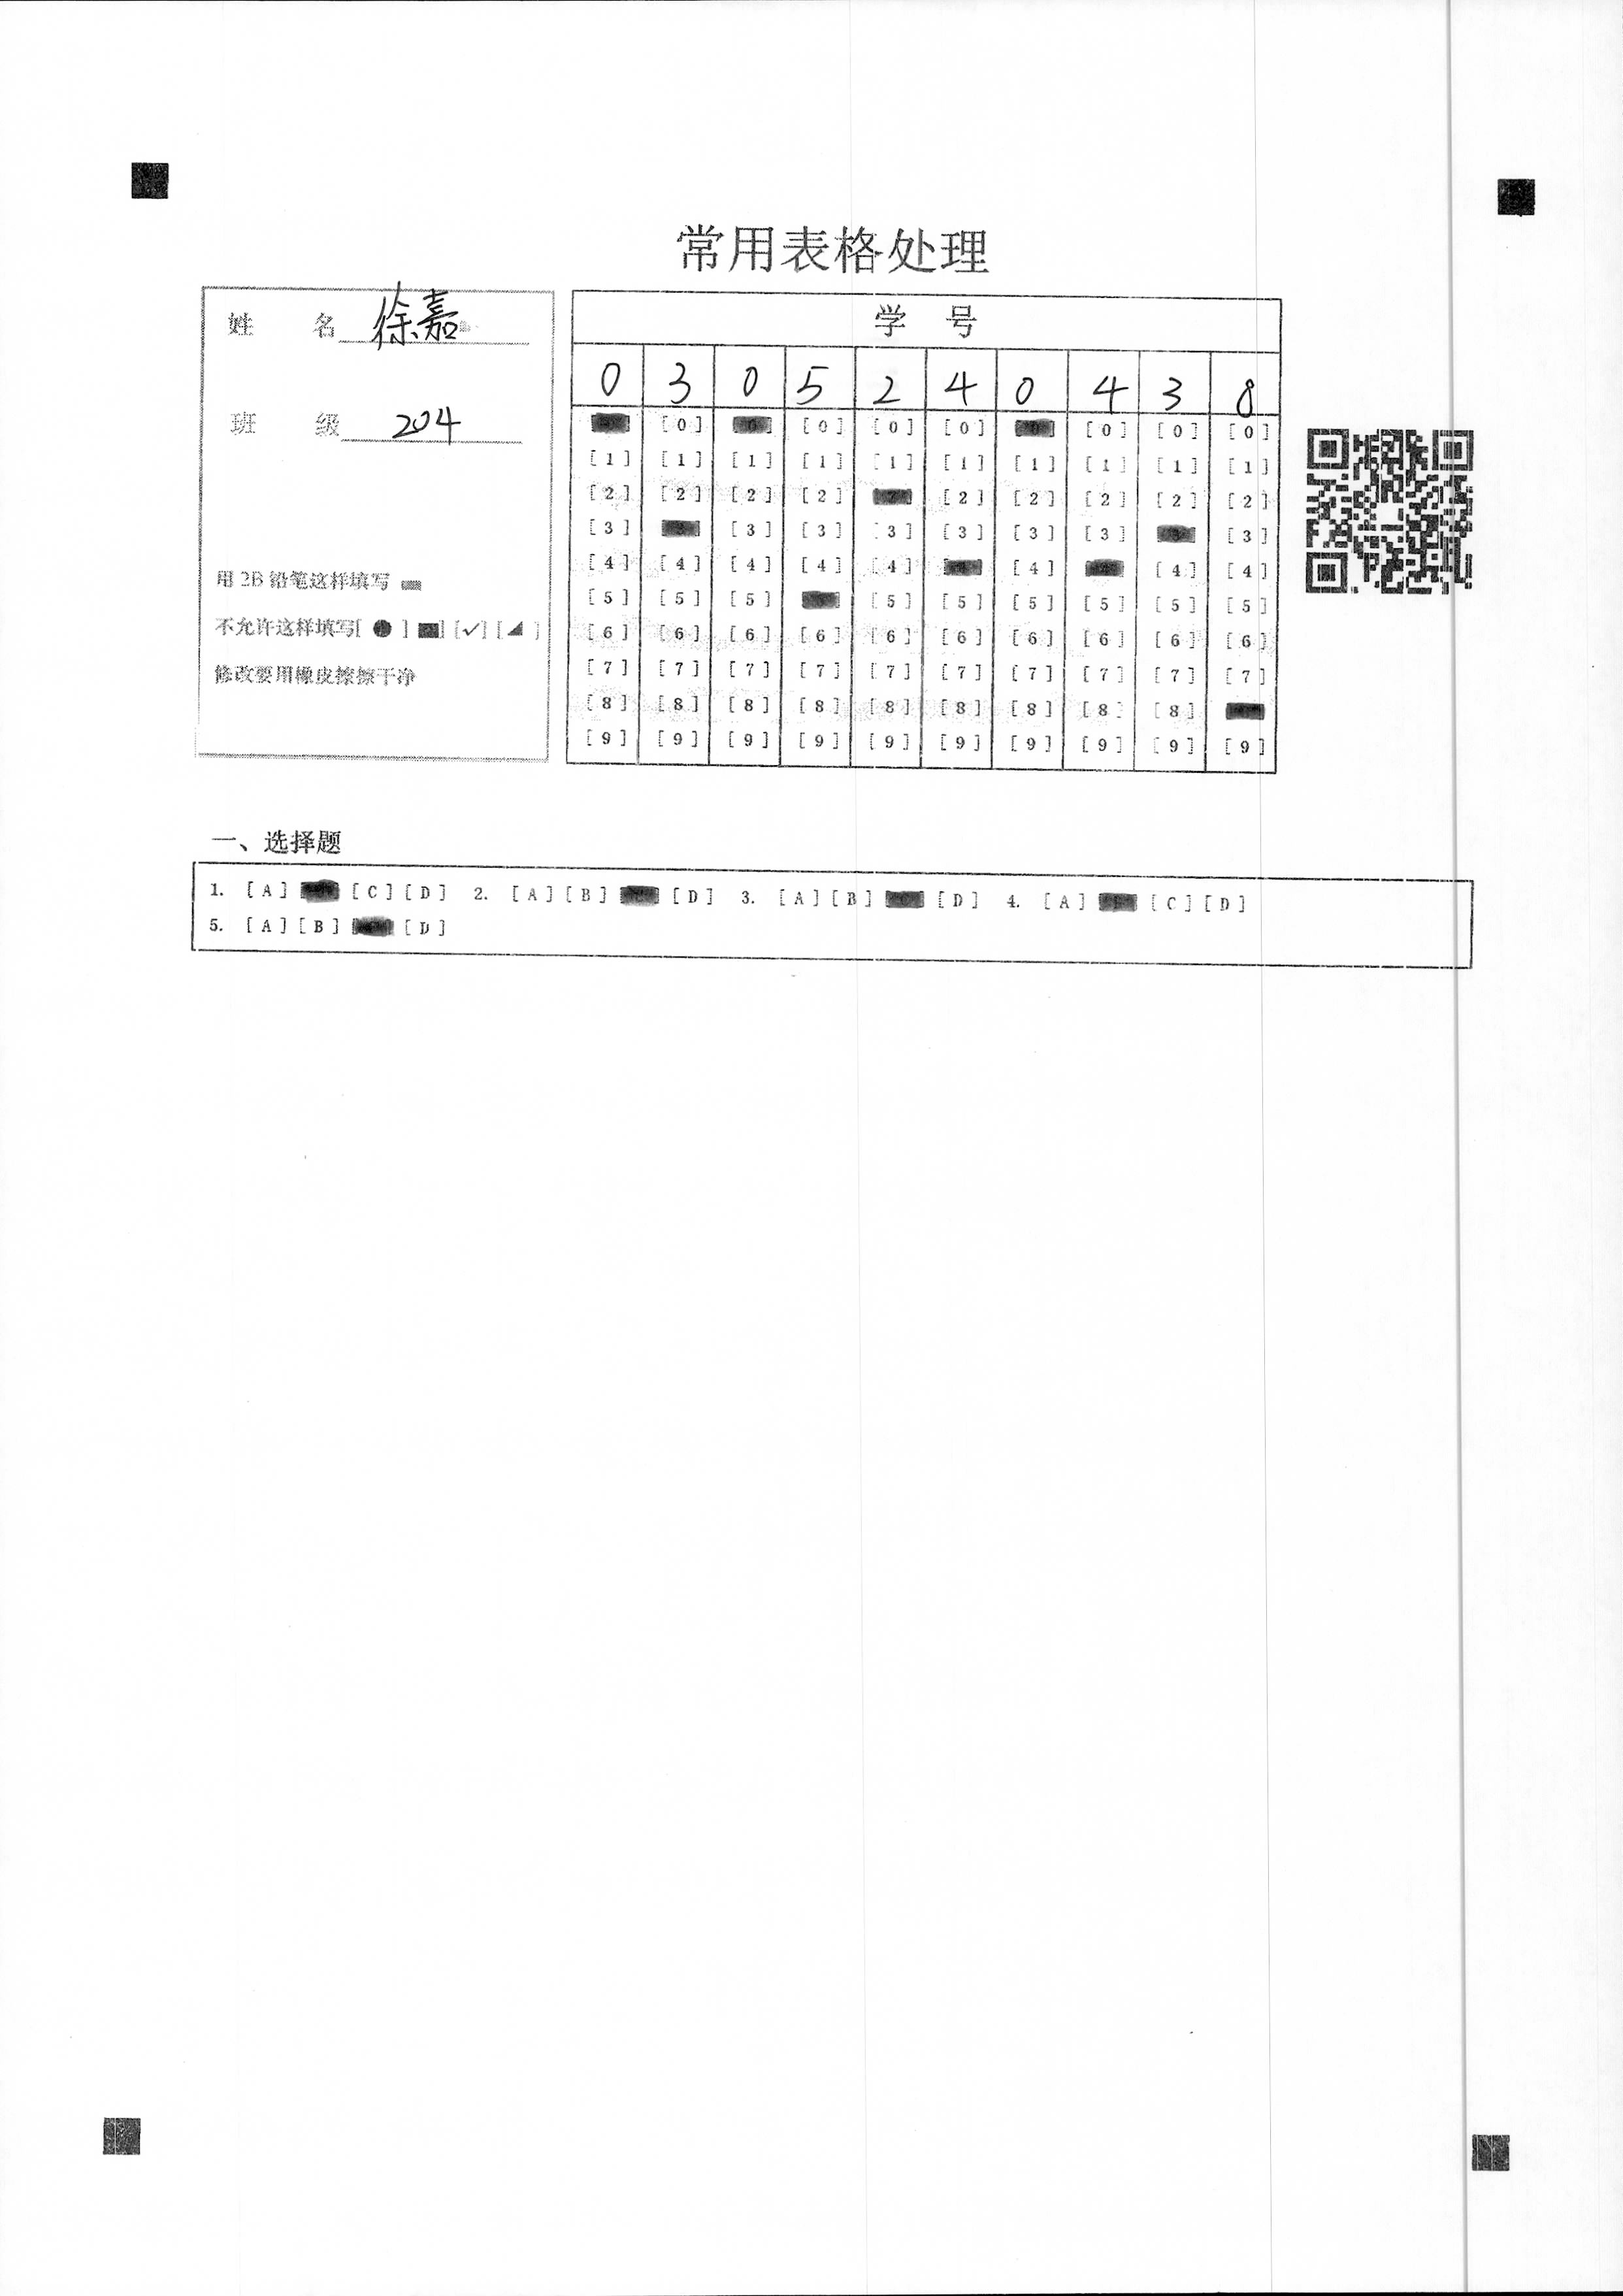 常用表格处理
姓 名 徐嘉
班 级 204
用 2B 铅笔这样填写
不允许这样填写[ ● ] [■] [✓] [◢ ]
修改要用橡皮擦擦干净
学 号
0 3 0 5 2 4 0 4 3 8
[0] [0] [0] [0] [0] [0] [0]
[1] [1] [1] [1] [1] [1] [1] [1] [1] [1]
[2] [2] [2] [2] [2] [2] [2] [2] [2]
[3] [3] [3] [3] [3] [3] [3] [3]
[4] [4] [4] [4] [4] [4] [4] [4]
[5] [5] [5] [5] [5] [5] [5] [5] [5]
[6] [6] [6] [6] [6] [6] [6] [6] [6] [6]
[7] [7] [7] [7] [7] [7] [7] [7] [7] [7]
[8] [8] [8] [8] [8] [8] [8] [8] [8]
[9] [9] [9] [9] [9] [9] [9] [9] [9] [9]
一、选择题
1. [A] [C] [D] 2. [A] [B] [D] 3. [A] [B] [D] 4. [A] [C] [D]
5. [A] [B] [D]